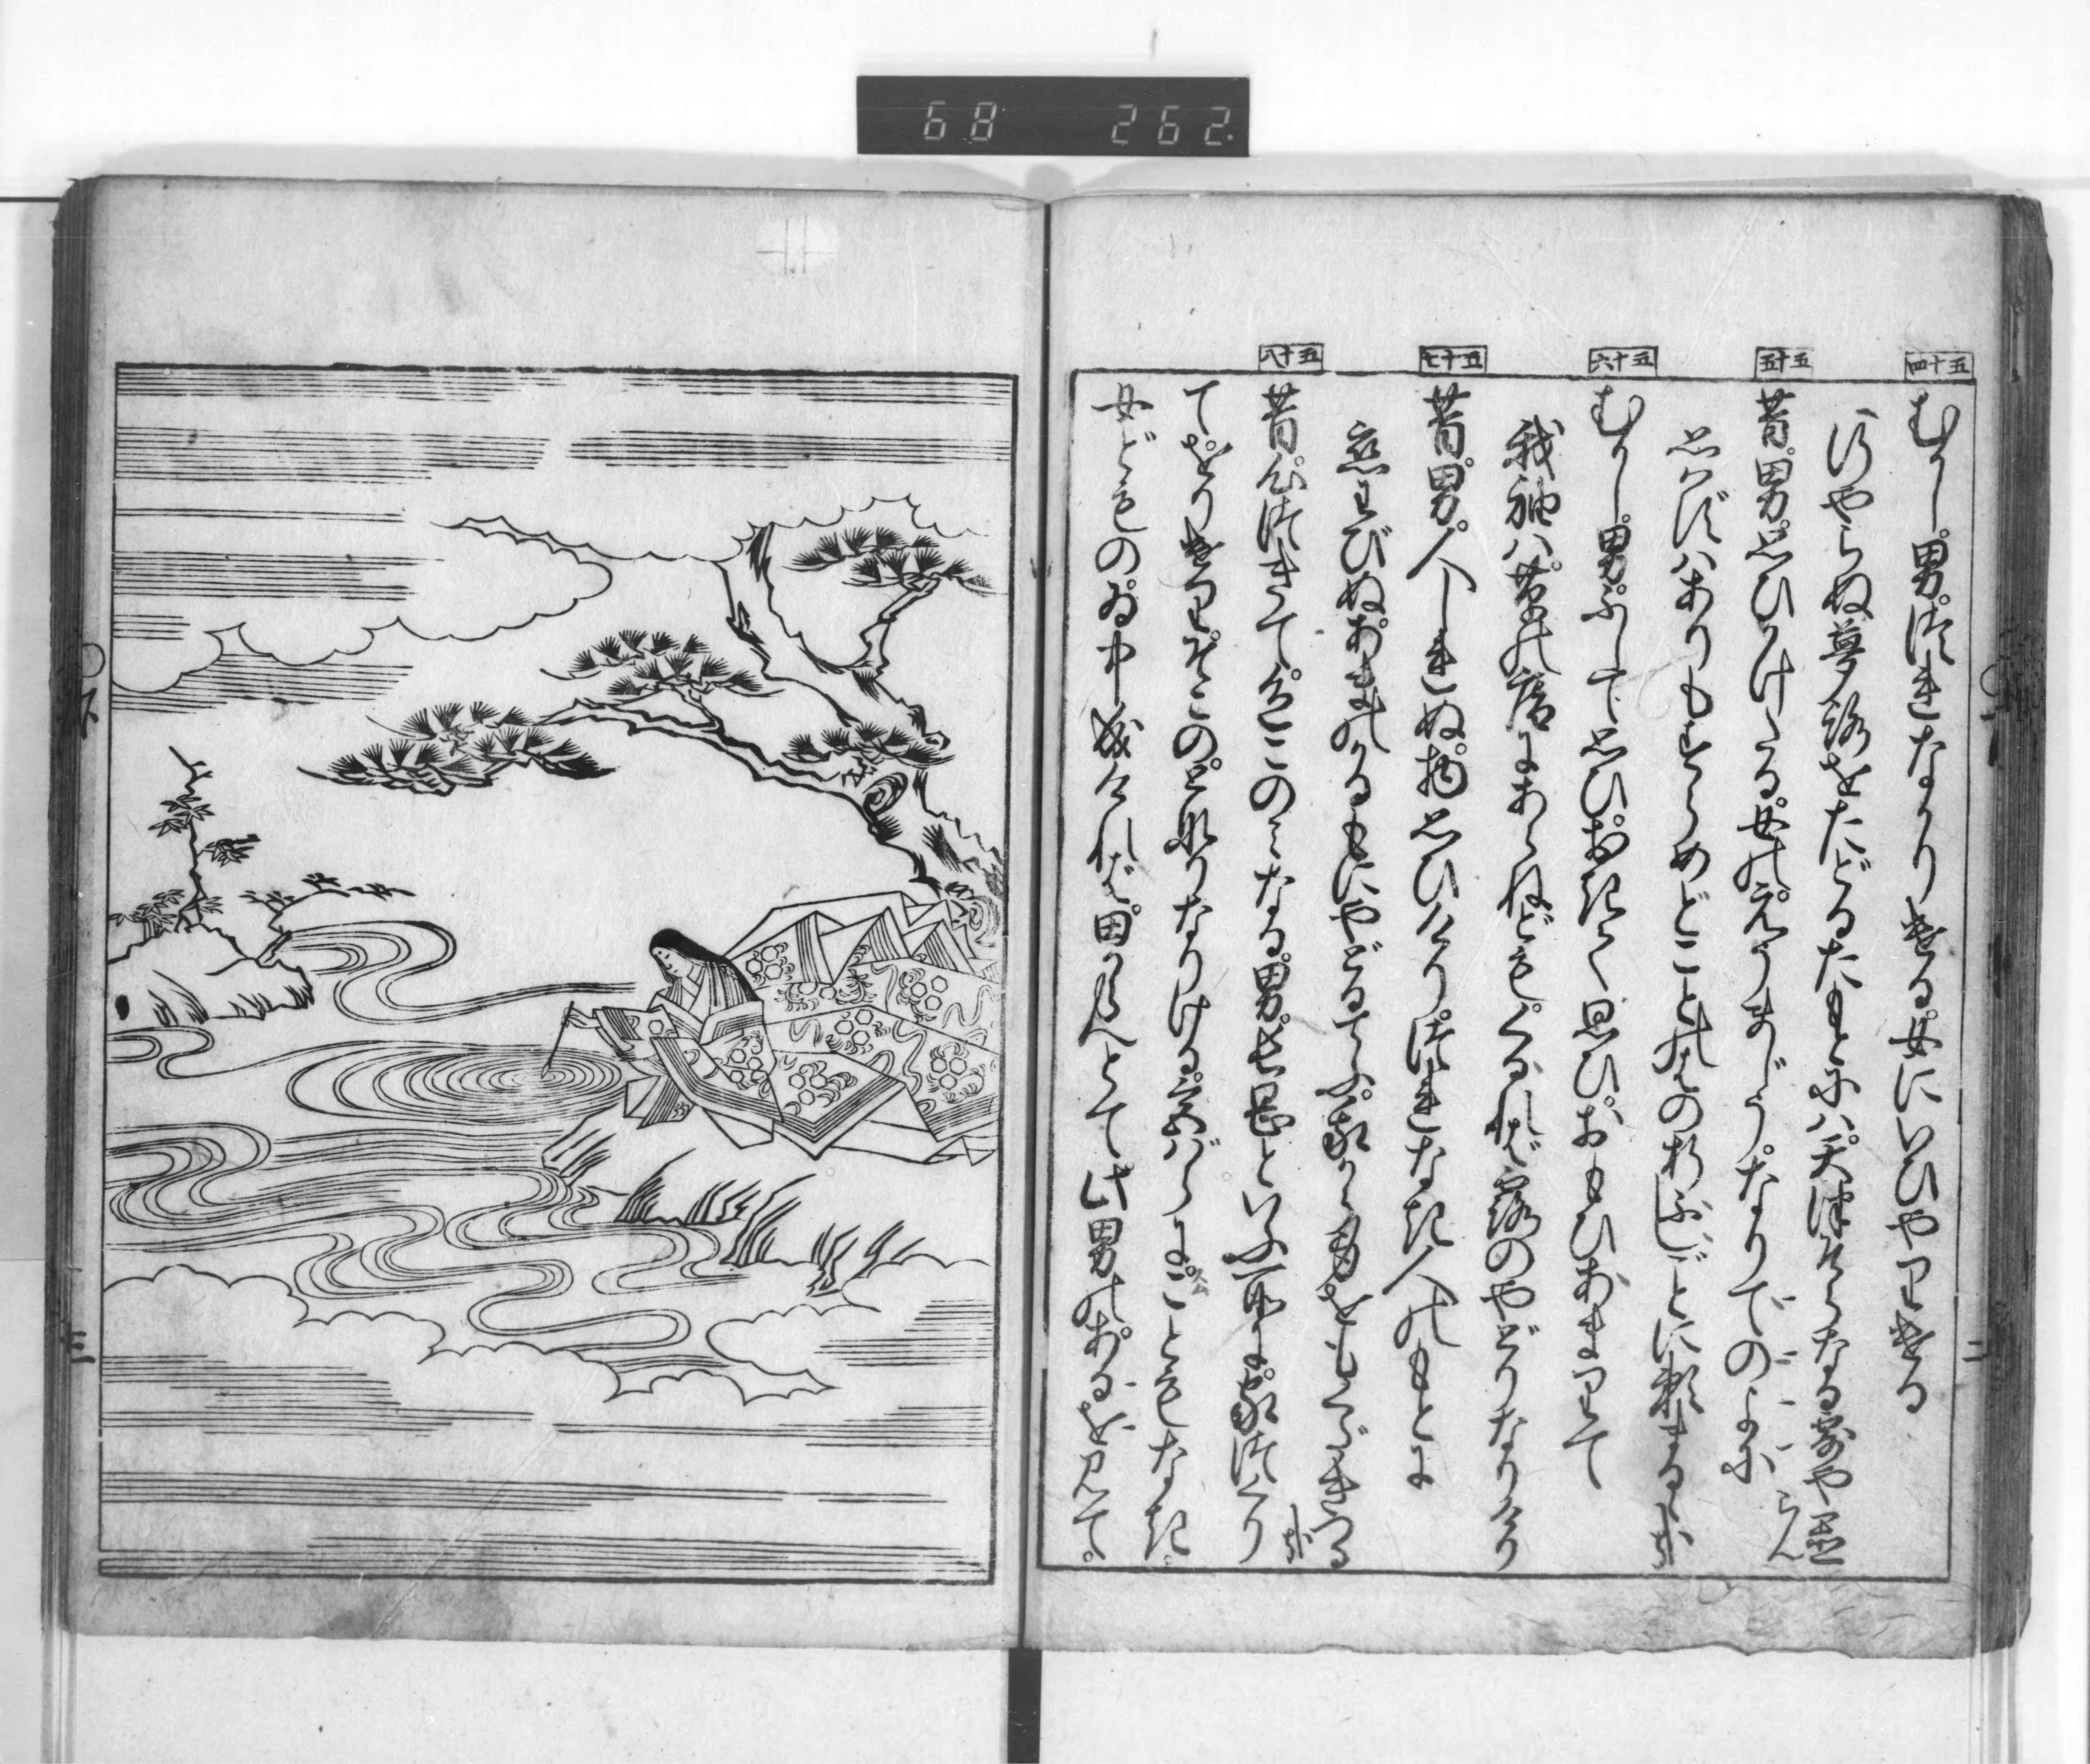 68 262.
五十四
むかし男つれなかりける女にいひやりける
行やらぬ夢路をたどるたもとには天津そらなる露や置らん
五十五
昔男思ひかけたる女のえうまじうなりての世に
思はずはありもすらめどことのはのおりふしごとに頼まるゝ哉
五十六
むかし男ふして思ひおきて思ひおもひあまりて
我袖は草の庵にあらねどもくるれば露のやどりなりけり
五十七
昔男人しれぬ物思ひけりつれなき人のもとに
恋わびぬあまのかるもにやどるてふ我から身をもくだきつる哉
五十八
昔心つきて色このみなる男長岡といふ所に家つくり
てをりけりそこのとなりなりける宮ばらにこともなき
女どものゐ中成ければ田からんとて此男のあるを見て
二
下
三